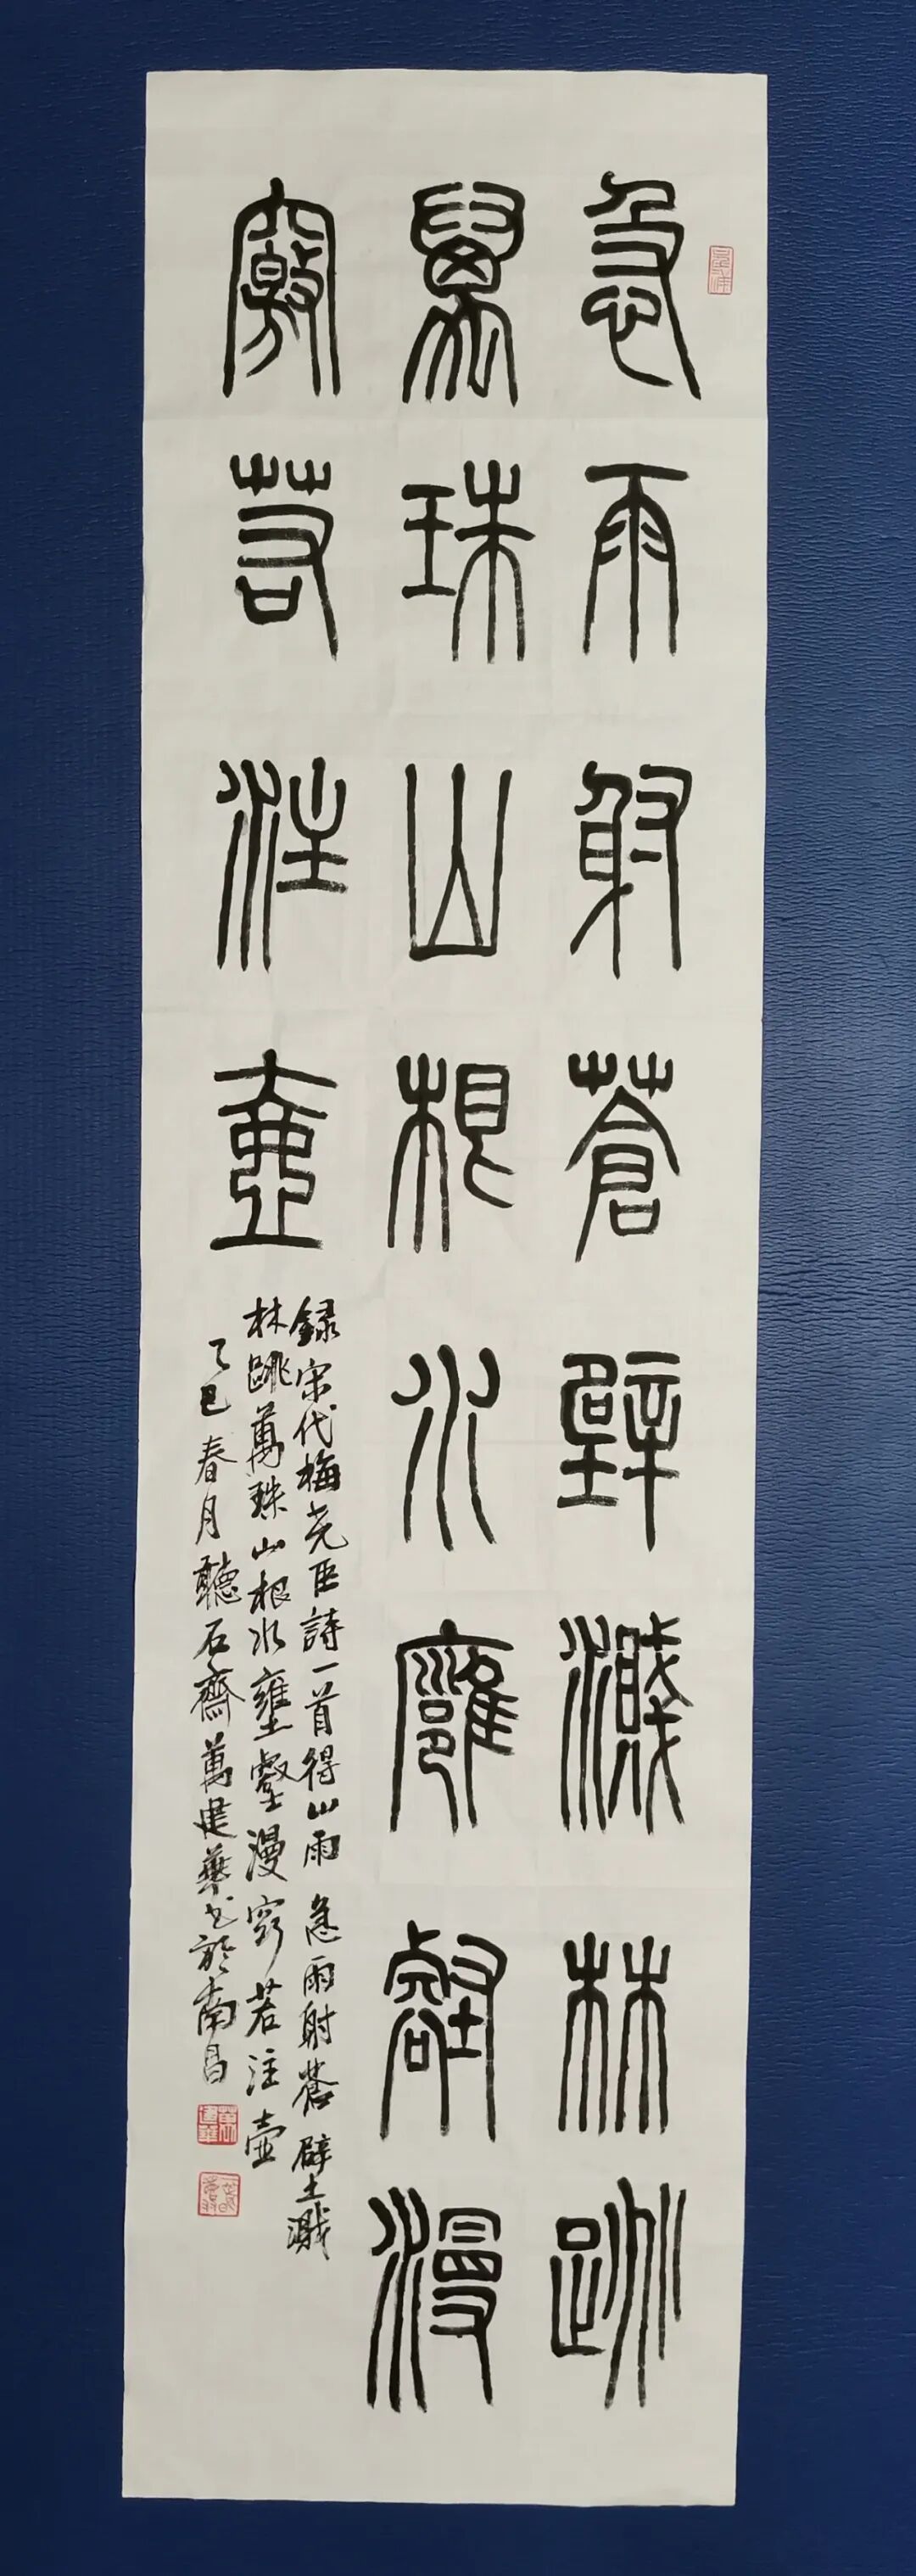 急雨射蒼壁濺林跳
萬珠山根水壅壑漫
窮若注壺
録宋代梅尭臣詩一首得山雨 急雨射蒼壁濺
林跳萬珠山根水壅壑漫窮若注壺
乙巳春月聽石齋萬建華书於南昌